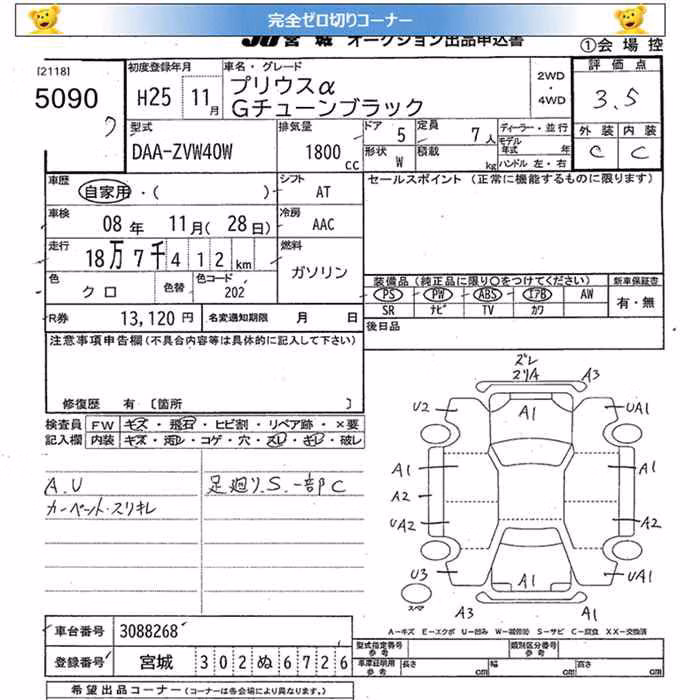 完全ゼロ切りコーナー
JU 宮城 オークション出品申込書 ①会場控
[2118]
5090
初度登録年月 H25 11月
車名・グレード プリウスα
Gチューンブラック
2WD・4WD
評価点 3.5
外装 内装
C C
型式 DAA-ZVW40W
排気量 1800cc
ドア 5 定員 7人
形状 W 積載 kg
ディーラー・並行
モデル年式 年
ハンドル 左・右
車歴 自家用・( )
シフト AT
セールスポイント (正常に機能するものに限ります)
車検 08年 11月(28日)
冷房 AAC
走行 18万7千412km
燃料 ガソリン
色 クロ 色替 色コード 202
装備品(純正品に限り○をつけてください) 新車保証書
PS PW ABS エアB AW 有・無
SR ナビ TV カワ
R券 13,120円 名変通知期限 月 日
後日品
注意事項申告欄(不具合内容等は具体的に記入して下さい)
修復歴 有 〔箇所 〕
検査員 FW キズ・飛石・ヒビ割・リペア跡・×要
記入欄 内装 キズ・汚レ・コゲ・穴・スレ・キレ・破レ
A.U
カーペット・スリキレ
足廻り.S.一部C
ズレ
ヌリA A3
U2 A1 UA1
A1 A1
A2
UA2 A2
U3 A1 UA1
スペア
A3 A1
A-キズ E-エクボ U-凹み W-補修跡 S-サビ C-腐食 XX-交換済
車台番号 3088268
登録番号 宮城 302ぬ6726
型式指定番号 参考 類別区分番号 参考
車庫証明用 参考 長さ cm 幅 cm 高さ cm
希望出品コーナー(コーナーは各会場により異なります。)